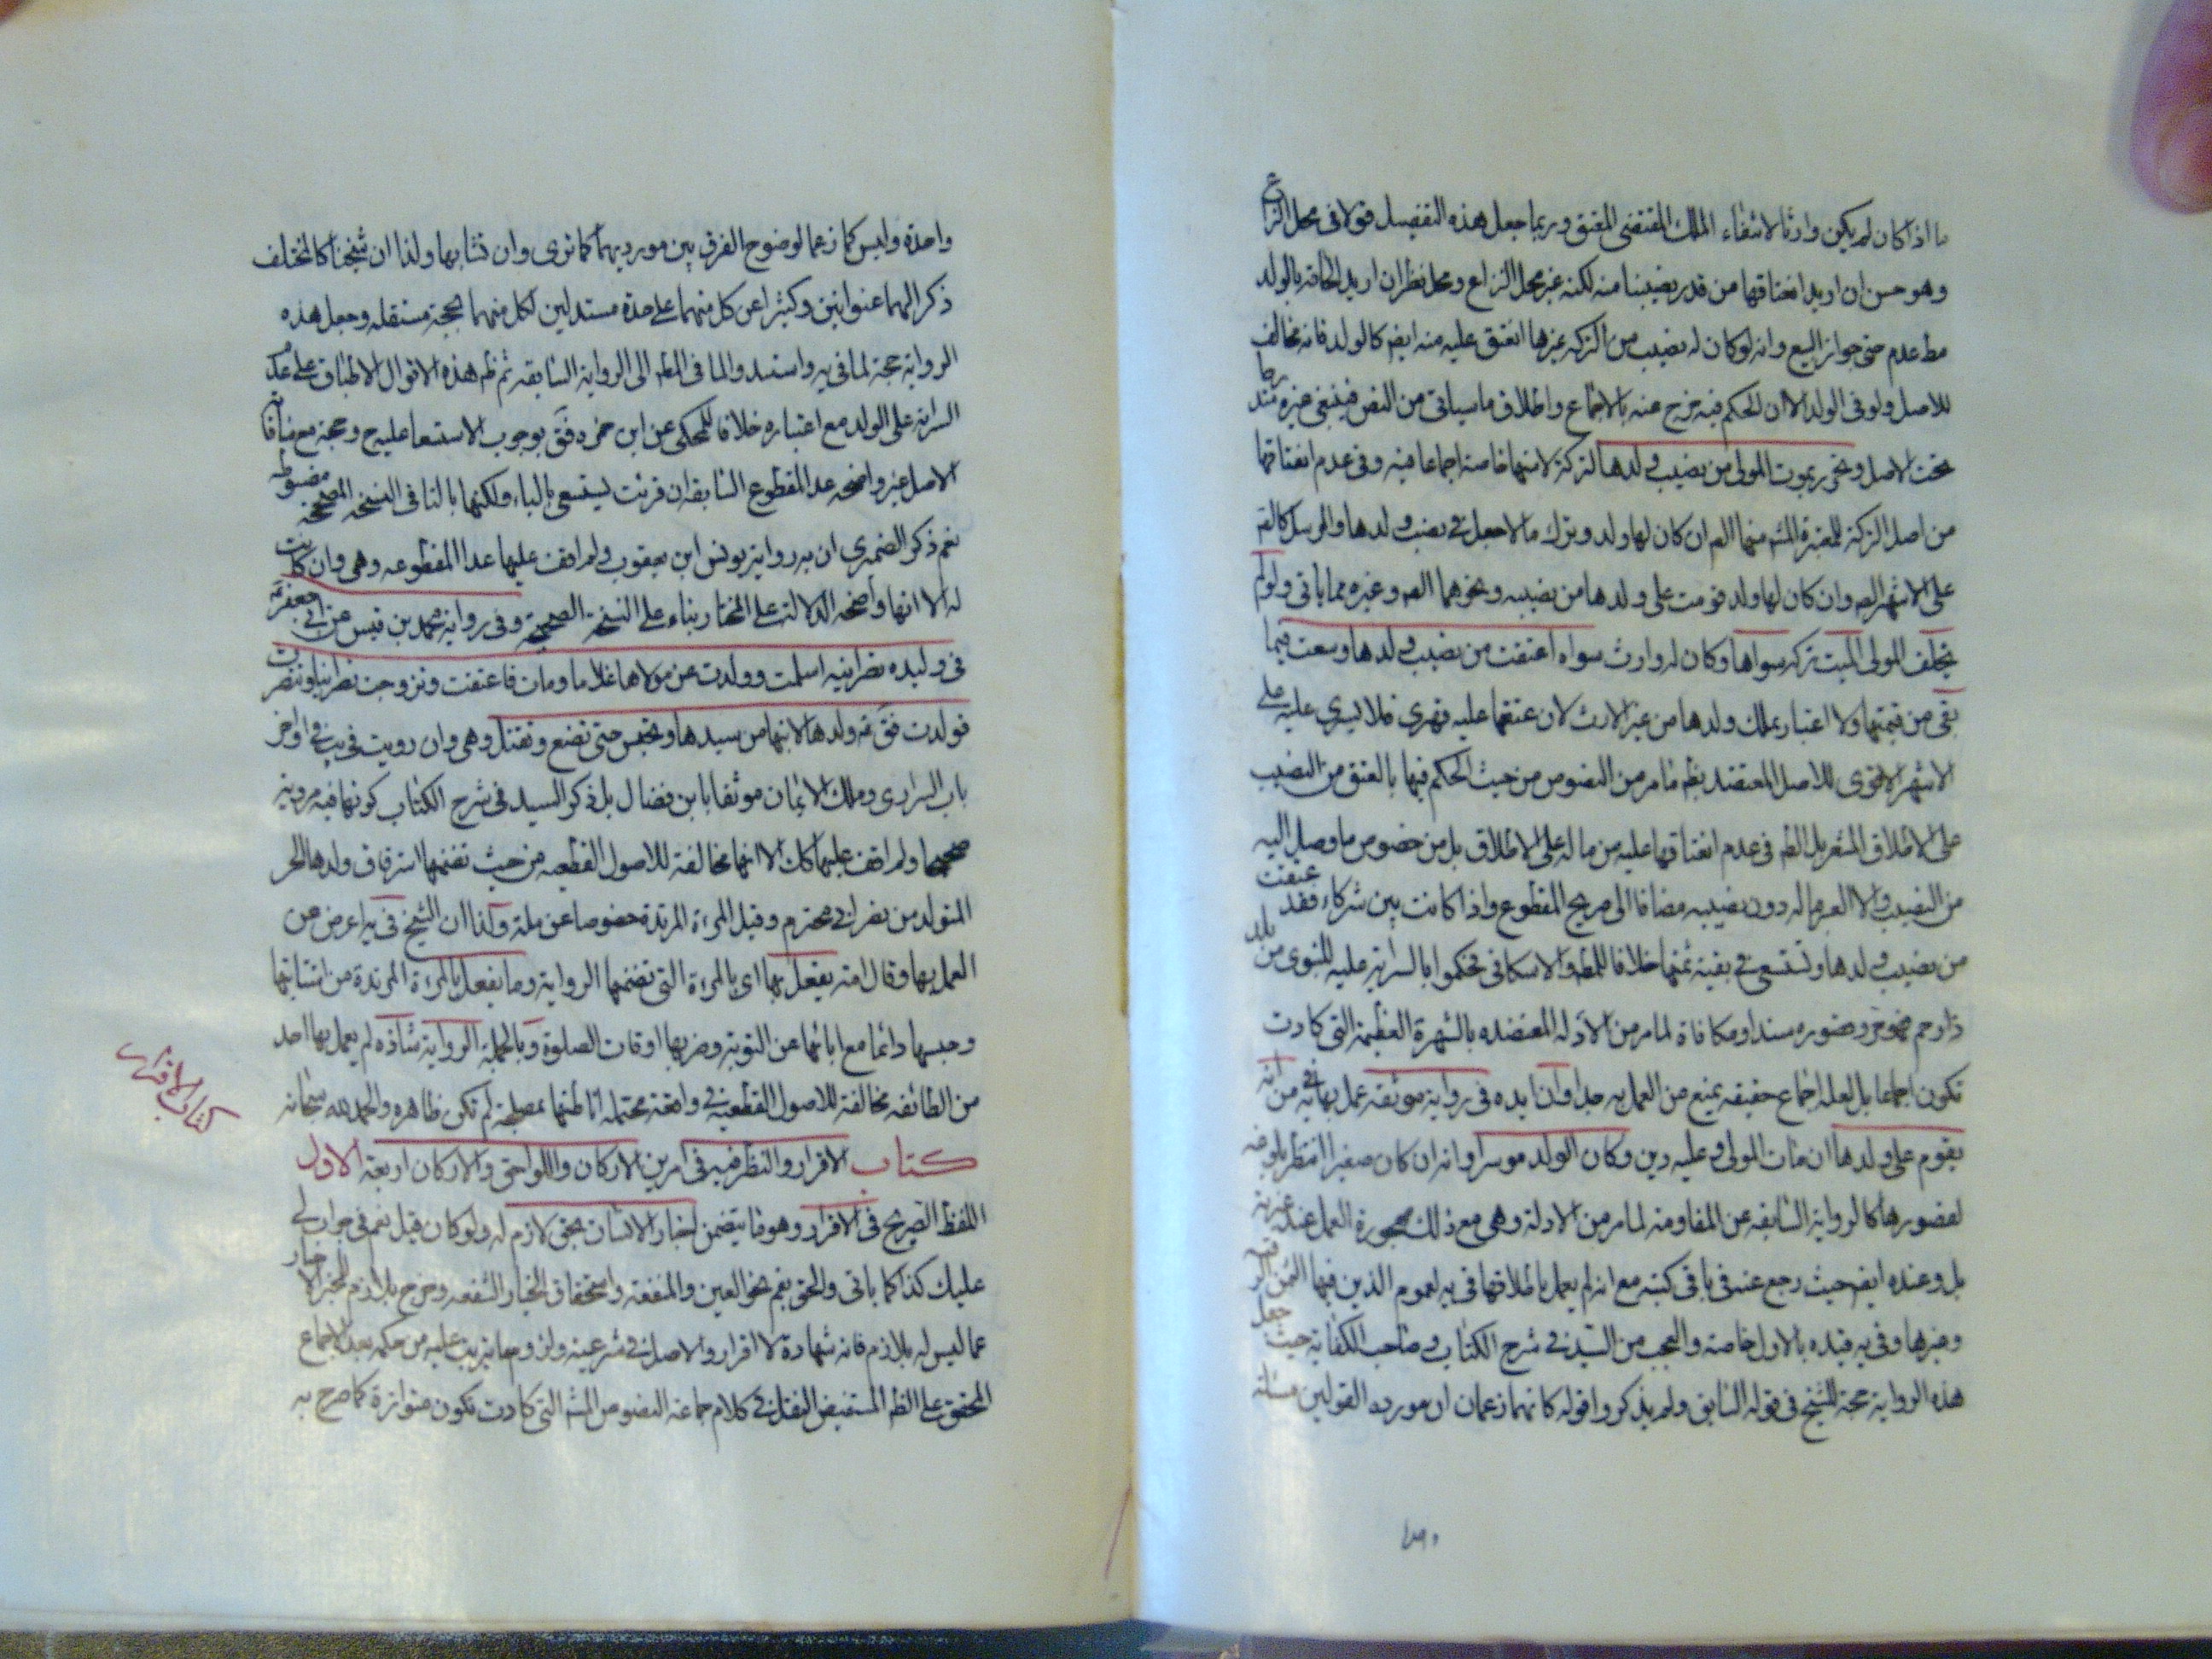 ما اذا كان لم يكن وارثا لانتفاء الملك المقتضى للعتق وربما جعل هذه التفصيل قولا فى محل النزاع
وهو حسن ان اريد انعتاقها من قدر نصيبنا منه لكنه غير محل النزاع ومحل نظر ان اريد الحاقه بالولد
مط عدم حتى جواز البيع وانه لو كان له نصيب من التركه غيرها انعتق عليه منه ايض كالولد فانه مخالف
للاصل ولو فى الولد الا ان الحكم فيه خرج عنه بالاجماع واطلاق ماسياتى من النص فينبغى غيره مندرجا
تحت الاصل وتتحرر بموت المولى من نصيب ولدها التركة لانتها خاصة اجماعا فيه وفى عدم انعتاقها
من اصل التركة للمعتبرة المستر منها الص ان كان لها ولد وترك مالا جعل فى نصيب ولدها والمرسل كالص
على الاشهر الص وان كان لها ولد قومت على ولدها من نصيبه ونحوهما الص وغيره مما ياتى ولو لم
يخلف المولى الميت تركه سواها وكان له وارث سواه اعتقت من نصيب ولدها وسعت فيما
بقى من قيمتها ولا اعتبار بملك ولدها من غير الارث لان عتقها عليه قهرى فلا يسرى عليه على
الاشهر الاقوى للاصل المعتضد بظ ما مر من النصوص من حيث الحكم فيها بالعتق من النصيب
على الاطلاق المشعر بل الظ فى عدم انعتاقها عليه من ماله على الاطلاق بل من خصوص ما وصل اليه
من النصيب والا لعبر بماله دون نصيبه مضافا الى صريح المقطوع واذا كانت بين شركاء فقد عتقت
من نصيب ولدها وتستسعى فى بقية ثمنها خلافا للمط والاسكافى فحكموا بالسراية عليه للنبوى من ملك
ذا رحم فهو حر وقصوره سندا ومكافاة لما مر من الادله المعتضده بالشهرة العظيمة التى كادت
تكون اجماعا بل لعله اجماع حقيقه يمنع من العمل به جدا وان ايده فى رواية موثقه عمل بها فى يه من انه
يقوم على ولدها ان مات المولى وعليه دين وكان الولد موسرا وانه ان كان صغيرا انتظر بلوغه
لقصورها كالرواية السابقه عن المقاومة لما مر من الادلة وهى مع ذلك مهجورة العمل عند غيره
بل وعنده ايض حيث رجع عنه فى باقى كتبه مع انه لم يعمل باطلاقها فى يه لعموم الدين فيها الثمن الرقبه
وغيرها وفى يه قيده بالاول خاصة والعجب من السيد فى شرح الكتاب وصاحب الكفاية حيث جعل
هذه الرواية حجة للشيخ فى قوله السابق ولم يذكروا قوله كانهما زعمان ان مورد القولين مسئلة
واحدة
واحدة وليس كما زعما لوضوح الفرق بين مورديهما كما ترى وان تشابها ولذا ان شيخنا كالمختلف
ذكر الهما عنوانين وكثيرا عن كل منهما على حدة مستدلين لكل منهما بحجة مستقله وجعل هذه
الرواية حجة لما فى يه واستند والما فى المط الى الرواية السابقه ثم ظ هذه الاقوال الاطباق على عدم
السراية على الولد مع اعتباره خلافا للمحكى عن ابن حمزه فق بوجوب الاستسعا عليه ح وحجه مع منافاته
الاصل غير واضحه عدا المقطوع السابق ان قرئت يستسعى بالياء ولكنها بالتا فى النسخه المصححه مضبوطه
نعم ذكر الضمرى ان به رواية يونس ابن يعقوب ولم اقف عليها عدا المقطوعه وهى وان كانت
له الا انها واضحه الدلالة على المختار بناء على النسخة الصحيحة وفى رواية محمد بن قيس عن ابى جعفر ع
فى وليده نصرانيه اسلمت وولدت من مولاها غلاما ومات فاعتقت وتزوجت نصرانيا وتنصرت
فولدت فق ع ولدها لابنها من سيدها وتحبس حتى تضع وتقتل وهى وان رويت فى يب فى اواخر
باب السرارى وملك الايمان موثقا بابن فضال بل ذكر السيد فى شرح الكتاب كونها فيه مروية
صحيحها ولم اقف عليها كك الا انها مخالفة للاصول القطعيه من حيث تضمنها استرقاق ولدها الحر
المتولد من نصرانى محترم وقيل المرءة المرتدة خصوصا عن ملة ولذا ان الشيخ فى يه اعرض عن
العمل بها وقال انه يفعل بها اى بالمرءة التى تضمنها الرواية وما يفعل بالمرءة المرتدة من استتابتها
وحبسها دائما مع ابائها عن التوبة وضربها اوقات الصلوة وبالجملة الرواية شاذه لم يعمل بها احد
من الطائفه مخالفة للاصول القطعيه فى واقعة محتمله اناطتها بمصلحة لم تكن ظاهره والحمد لله سبحانه
كتاب الاقرار والنظر فيه فى امرين الاركان واللواحق والاركان اربعة الاول
اللفظ الصريح فى الاقرار وهو ما يتضمن اخبار الانسان بحق لازم له ولو كان قيل نعم فى جواب لى
عليك كذا كما ياتى والحق يعم نحو العين والمنفعة واستحقاق الخيار والشفعه وخرج بلازم للمخبر الاخبار
عما ليس له بلازم فانه شهادة لا اقرار والاصل فى شرعيته ولزوم ما يترتب عليه من حكمه بعد الاجماع
المحقق على الظ المستفيض النقل فى كلام جماعه النصوص المستر التى كادت تكون متواترة كما صرح به
كتاب الاقرار